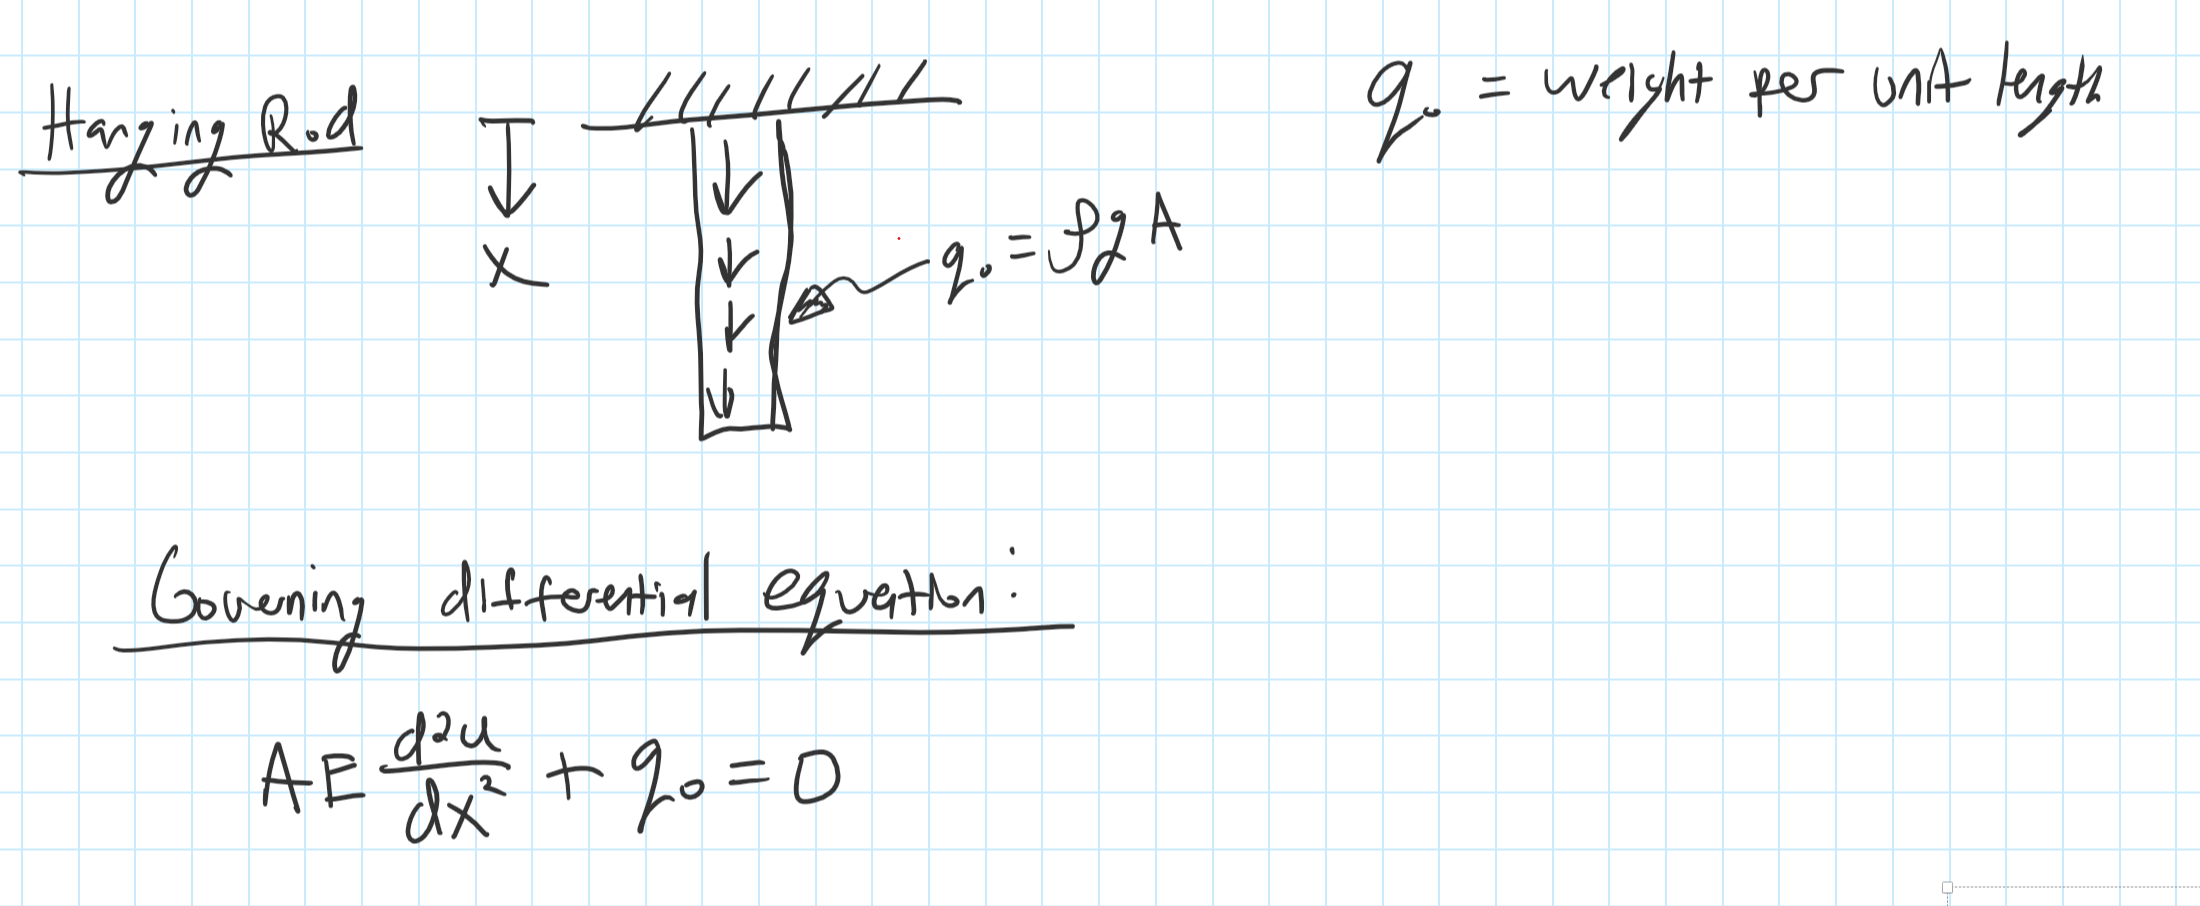 Hanging Rod
x
q₀ = ρgA
q₀ = weight per unit length
Governing differential equation:
AE d²u/dx² + q₀ = 0